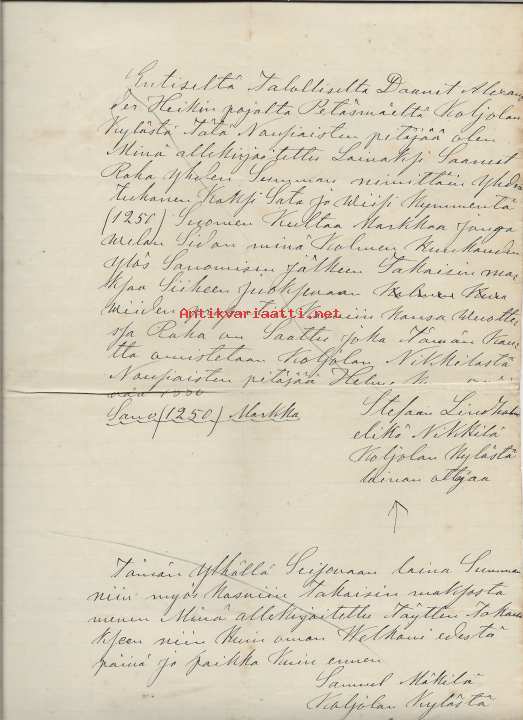 Entiseltä Talolliselta Daavit Alexan
der Heikin pojalta Petäsmäeltä Koljolan
Kylästä Tätä Naupiaisten pitäjää olen
Minä allekirjoitettu Lainaksi Saanut
Raha Yhden Summan nimittäin Yhden
tuhanen Kaksi Sata ja Wiisi Kymmentä
(1250) Suomen Kultaa Markkaa jonga
welan Sidon minä Kolmen Kuukauden
ylös Sanomisen jälkeen Takaisin ma
ksaa Siiheen juoksevaan
wiiden Kuin kansa wuotte
Raha on Saattu joka Tämän Kau
tta omistetaan Koljolan Nikkilästä
Naupiaisten pitäjää
Sano (1250) Markka
Antikvariaatti.net
Stefaan Lindholm
elikä Nikkilä
Koljolan Kylästä
lainan ottjaa
Tämän Ylhällä Seisovaan laina Summan
niin myös Kasvuin Takaisin maksosta
menen Minä allekirjoitettu Täyttin Takau
kseen niin Kuin oman Welkani edestä
päivä ja paikka Kuin ennen
Samuel Mäkilä
Koljolan Kylästä